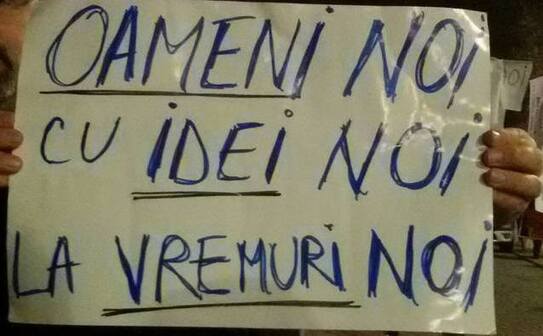 OAMENI NOI
CU IDEI NOI
LA VREMURI NOI